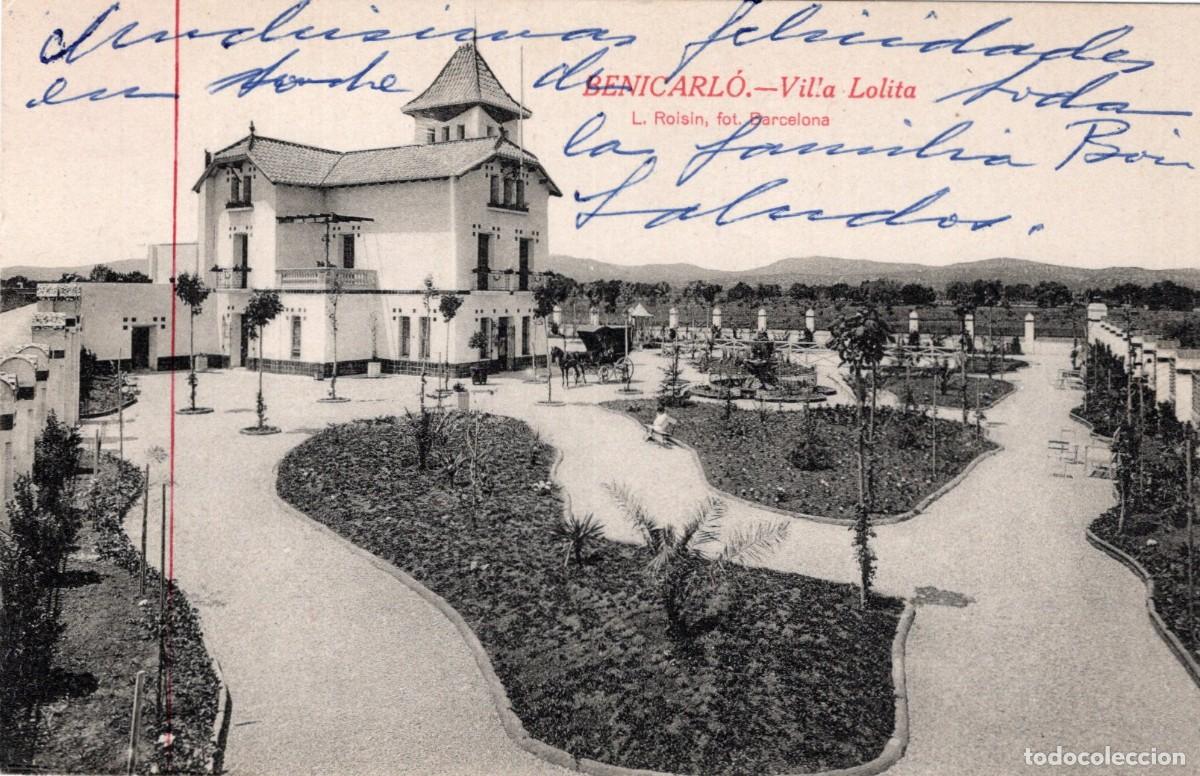 Muchisimas felicidades
en noche de toda
BENICARLÓ.—Vil.'a Lolita
L. Roisin, fot. Barcelona
la familia Boix
Saludos.
todocoleccion